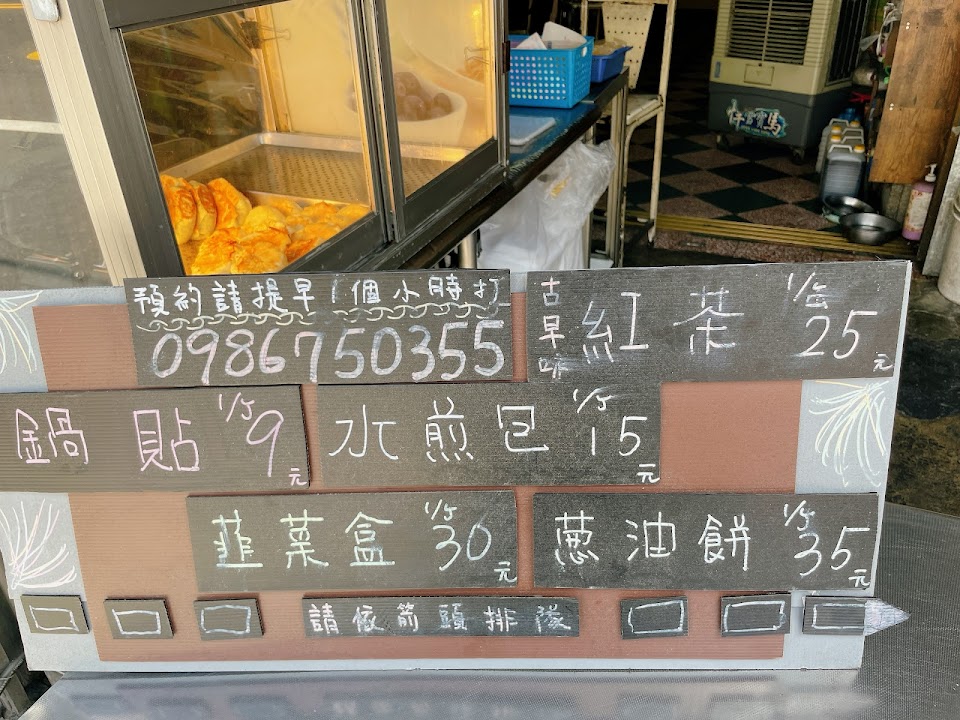 預約請提早1個小時打
0986750355
古早味 紅茶 1/杯 25元
鍋貼 1/个 9元
水煎包 1/个 15元
韮菜盒 1/个 30元
蔥油餅 1/个 35元
請依箭頭排隊